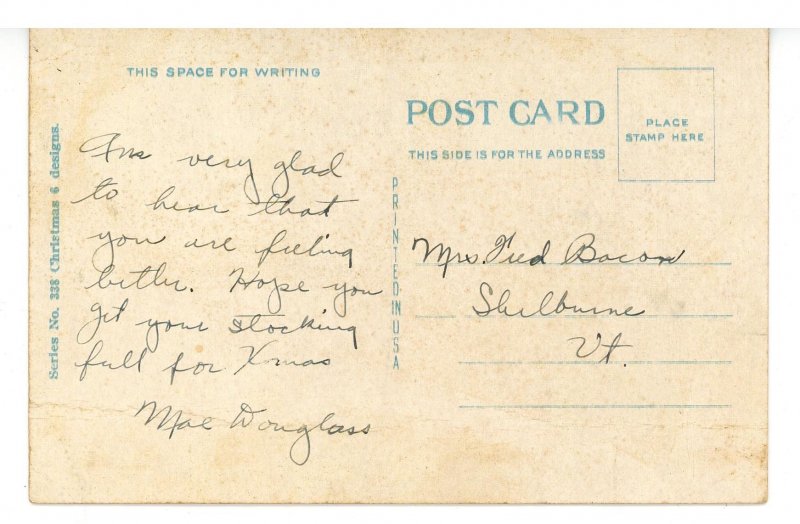 THIS SPACE FOR WRITING
Series No. 338 Christmas 6 designs.
Am very glad
to hear that
you are feeling
better. Hope you
get your stocking
full for Xmas
Mae Douglass
PRINTED IN USA
POST CARD
THIS SIDE IS FOR THE ADDRESS
PLACE
STAMP HERE
Mrs. Fred Bacon
Shelburne
Vt.